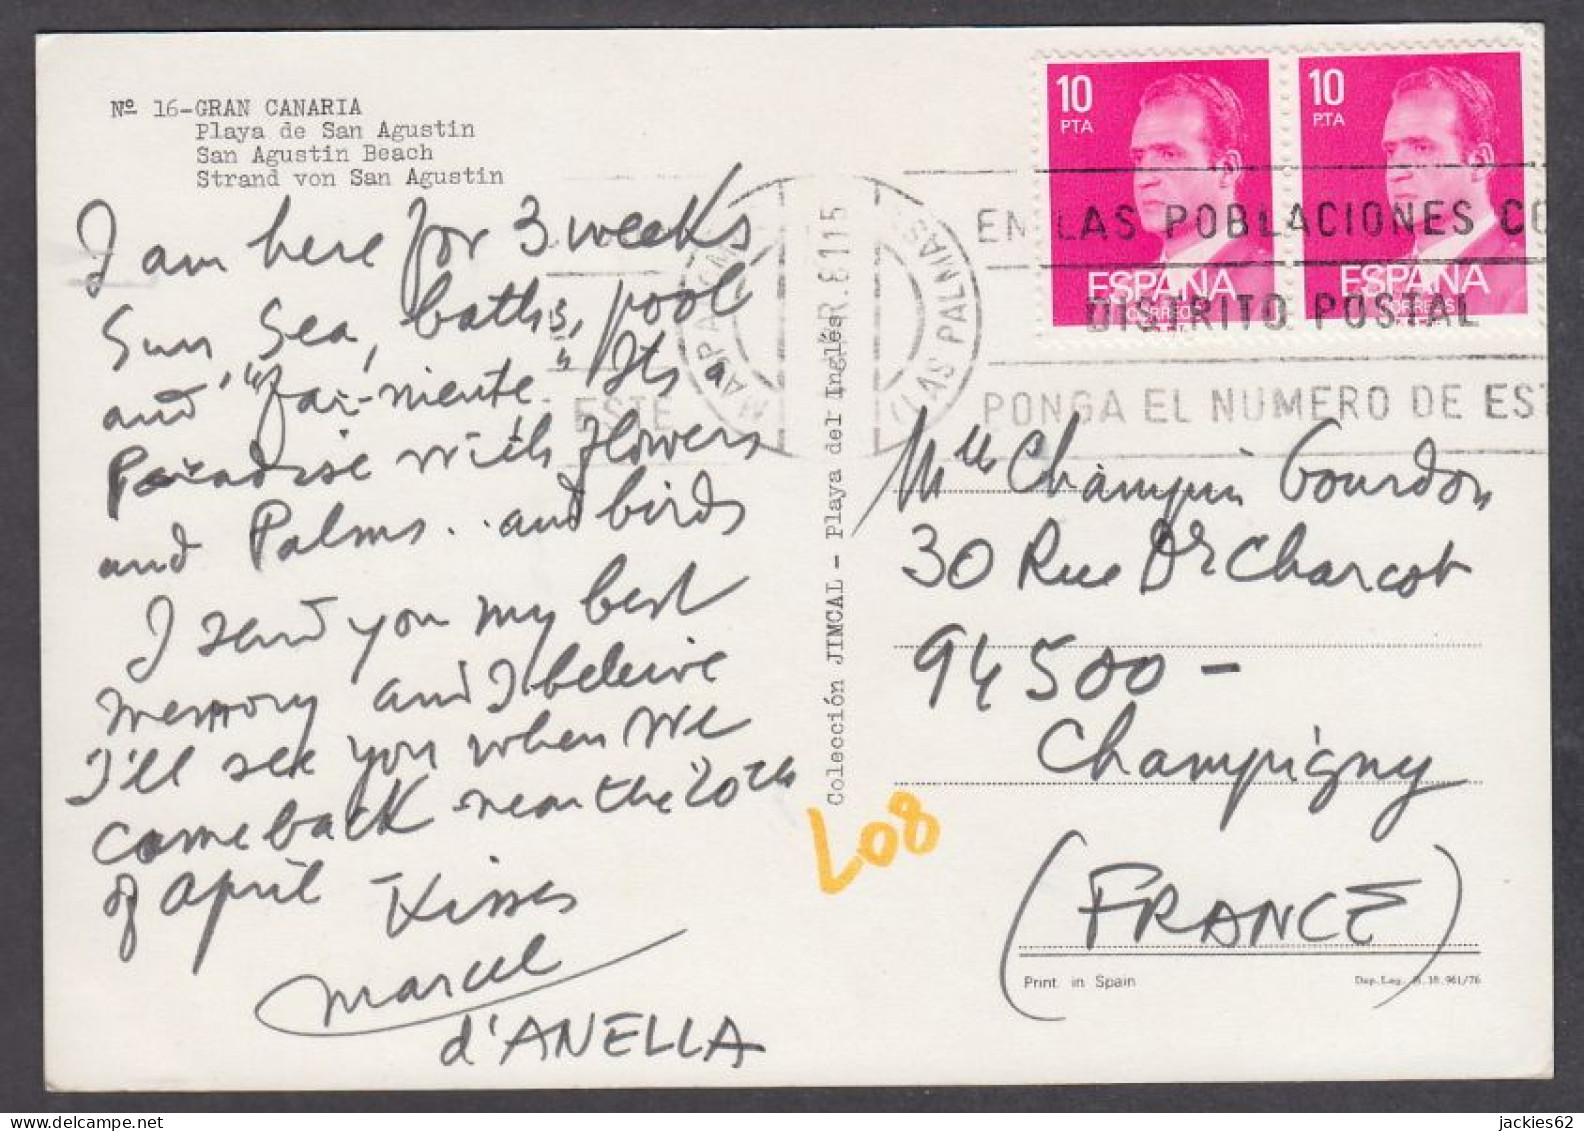 Nº 16-GRAN CANARIA
Playa de San Agustin
San Agustin Beach
Strand von San Agustin
I am here for 3 weeks
Sun Sea, baths, pool
and "far-niente." Its a
Paradise with flowers
and Palms.. and birds
I send you my best
memory and I beleive
I'll see you when we
come back near the 20th
of april Kisses
Marcel
d'ANELLA
Colección JIMCAL - Playa del Inglés
10
PTA
ESPAÑA
CORREOS
10
PTA
ESPAÑA
CORREOS
(LAS PALMAS)
EN LAS POBLACIONES CO
DISTRITO POSTAL
PONGA EL NUMERO DE EST
ESTE
Mlle Champin Gourdon
30 Rue Dr Charcot
94500 -
Champigny
(FRANCE)
L08
Print in Spain
Dep. Leg. B. 10.961/76
jackies62